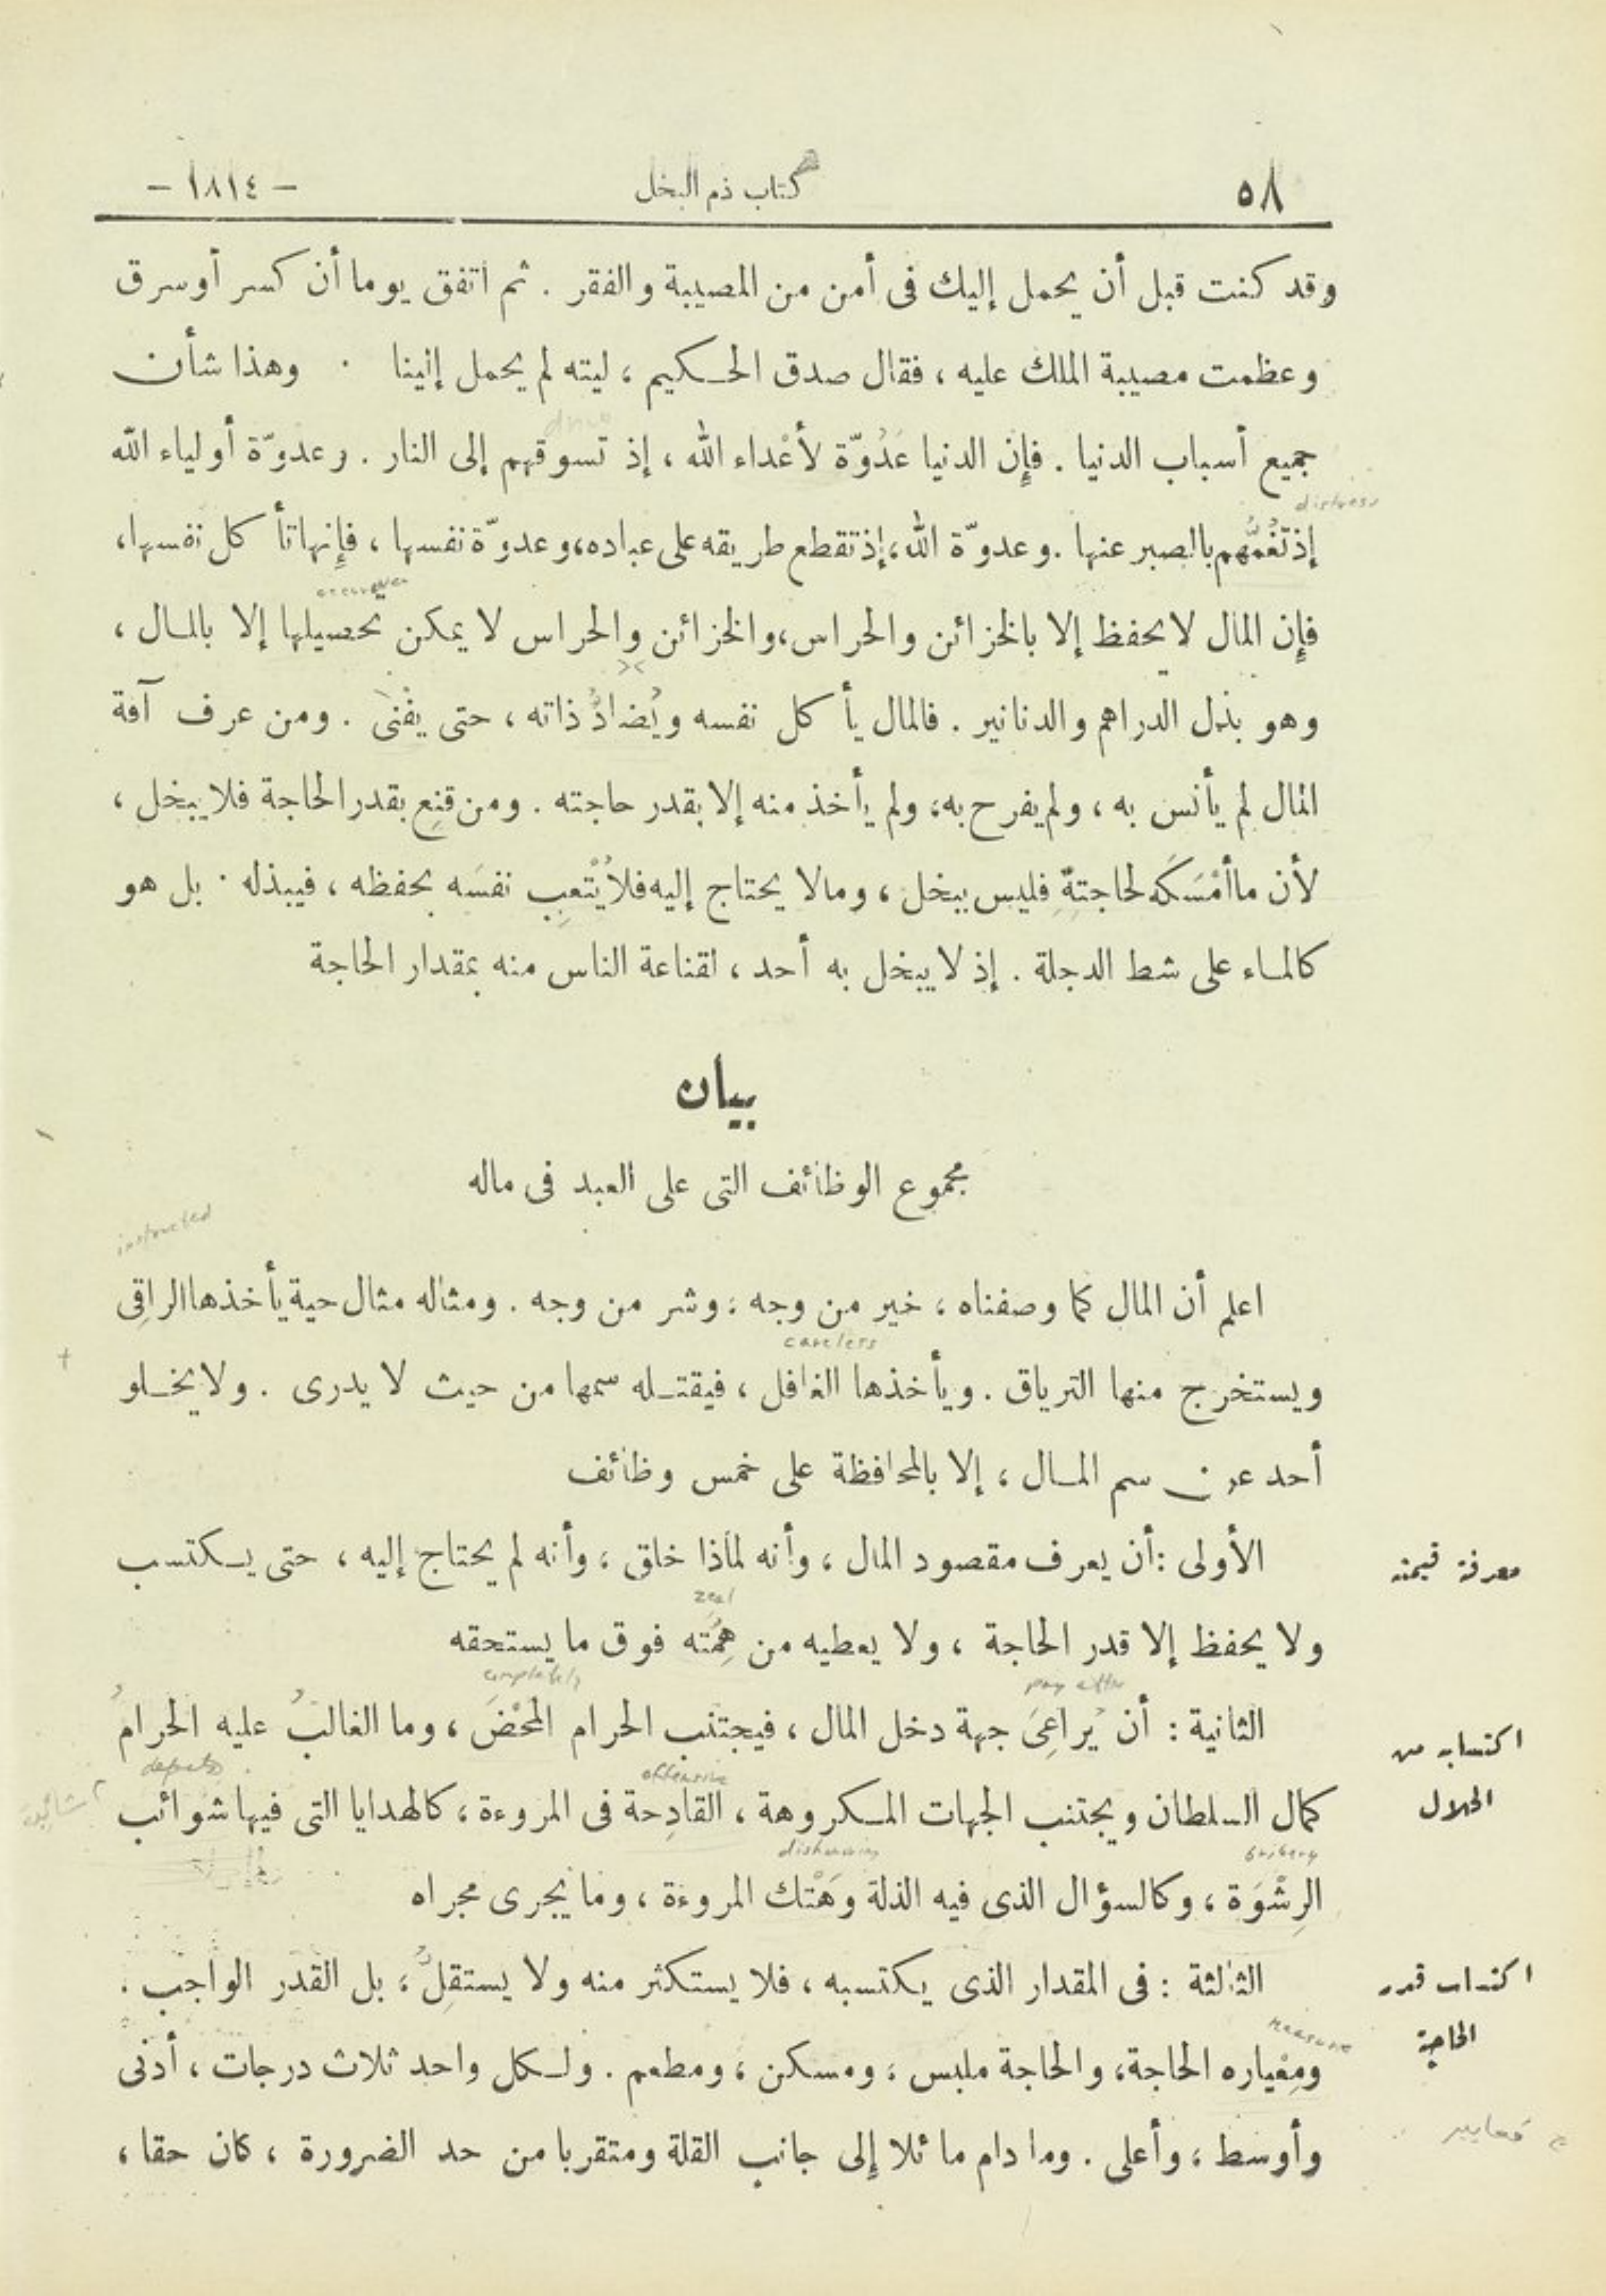 ٥٨
كتاب ذم البخل
– ١٨١٤ –
وقد كنت قبل أن يحمل إليك فى أمن من المصيبة والفقر . ثم اتفق يوما أن كسر أو سرق
وعظمت مصيبة الملك عليه ، فقال صدق الحكيم ، ليته لم يحمل إلينا . وهذا شأن
جميع أسباب الدنيا . فإن الدنيا عَدُوّة لأَعْداء الله ، إذ تسوقهم إلى النار . وعدوّة أولياء الله
distress
إذ تَغُمُّهم بالصبر عنها . وعدوّة الله ، إذ تقطع طريقه على عباده ، وعدوّة نفسها ، فإنها تأكل نفسها ،
فإن المال لا يحفظ إلا بالخزائن والحراس ، والخزائن والحراس لا يمكن تحصيلها إلا بالمال ،
وهو بذل الدراهم والدنانير . فالمال يأكل نفسه ويُضادُّ ذاته ، حتى يفْنىَ . ومن عرف آفة
المال لم يأنس به ، ولم يفرح به ، ولم يأخذ منه إلا بقدر حاجته . ومن قنِع بقدر الحاجة فلا يبخل ،
لأن ما أمْسَكَه لحاجتهِ فليس ببخل ، وما لا يحتاج إليه فلا يُتْعِب نفسَه بحفظه ، فيبذله . بل هو
كالماء على شط الدجلة . إذ لا يبخل به أحد ، لقناعة الناس منه بمقدار الحاجة
بيان
مجموع الوظائف التى على العبد فى ماله
instructed
اعلم أن المال كما وصفناه ، خير من وجه ، وشر من وجه . ومثاله مثال حية يأخذها الراقِى
careless
ويستخرج منها الترياق . ويأخذها الغافل ، فيقتله سمها من حيث لا يدرى . ولا يخلو
أحد عن سم المال ، إلا بالمحافظة على خمس وظائف
معرفة قيمته
الأولى : أن يعرف مقصود المال ، وأنه لماذا خلق ، وأنه لم يحتاج إليه ، حتى يكتسب
zeal
ولا يحفظ إلا قدر الحاجة ، ولا يعطيه من هِمَّته فوق ما يستحقه
completely
اكتسابه من الحلال
الثانية : أن يُراعِىَ جهة دخل المال ، فيجتنب الحرام المَحْضَ ، وما الغالبُ عليه الحرامُ
defects
offensive
كمال السلطان ويجتنب الجهات المكروهة ، القادِحة فى المروءة ، كالهدايا التى فيها شوائب
bribery
dishonoring
الرِشْوَة ، وكالسؤال الذى فيه الذلة وهَتْك المروءة ، وما يجرى مجراه
اكتساب قدر الحاجة
الثالثة : فى المقدار الذى يكتسبه ، فلا يستكثر منه ولا يستقِلُّ ، بل القدر الواجب .
measure
ومِعْياره الحاجة ، والحاجة ملبس ، ومسكن ، ومطعم . ولكل واحد ثلاث درجات ، أدنى
معايير
وأوسط ، وأعلى . وما دام مائلا إلى جانب القلة ومتقربا من حد الضرورة ، كان حقا ،